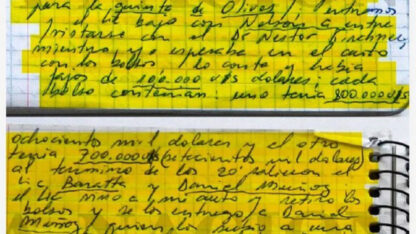 para la quinta de Olivos, entramos
y el lic bajo con Nelson a entre
vistarse con el Dr Nestor
mientras yo esperaba en el auto
con los bolsos, lo conte y habia
fajos de 100.000 U$S dolares; cada
bolso contenian: uno tenia 800.000 U$S
ochocientos mil dolares y el otro
tenia 700.000 U$S (setecientos mil dolares)
al termino de los 20' salieron el
lic Baratta y Daniel Muñoz
el lic vino a mi auto y retiro los
bolsos y se los entrego a Daniel
Muñoz, quien los subio a una